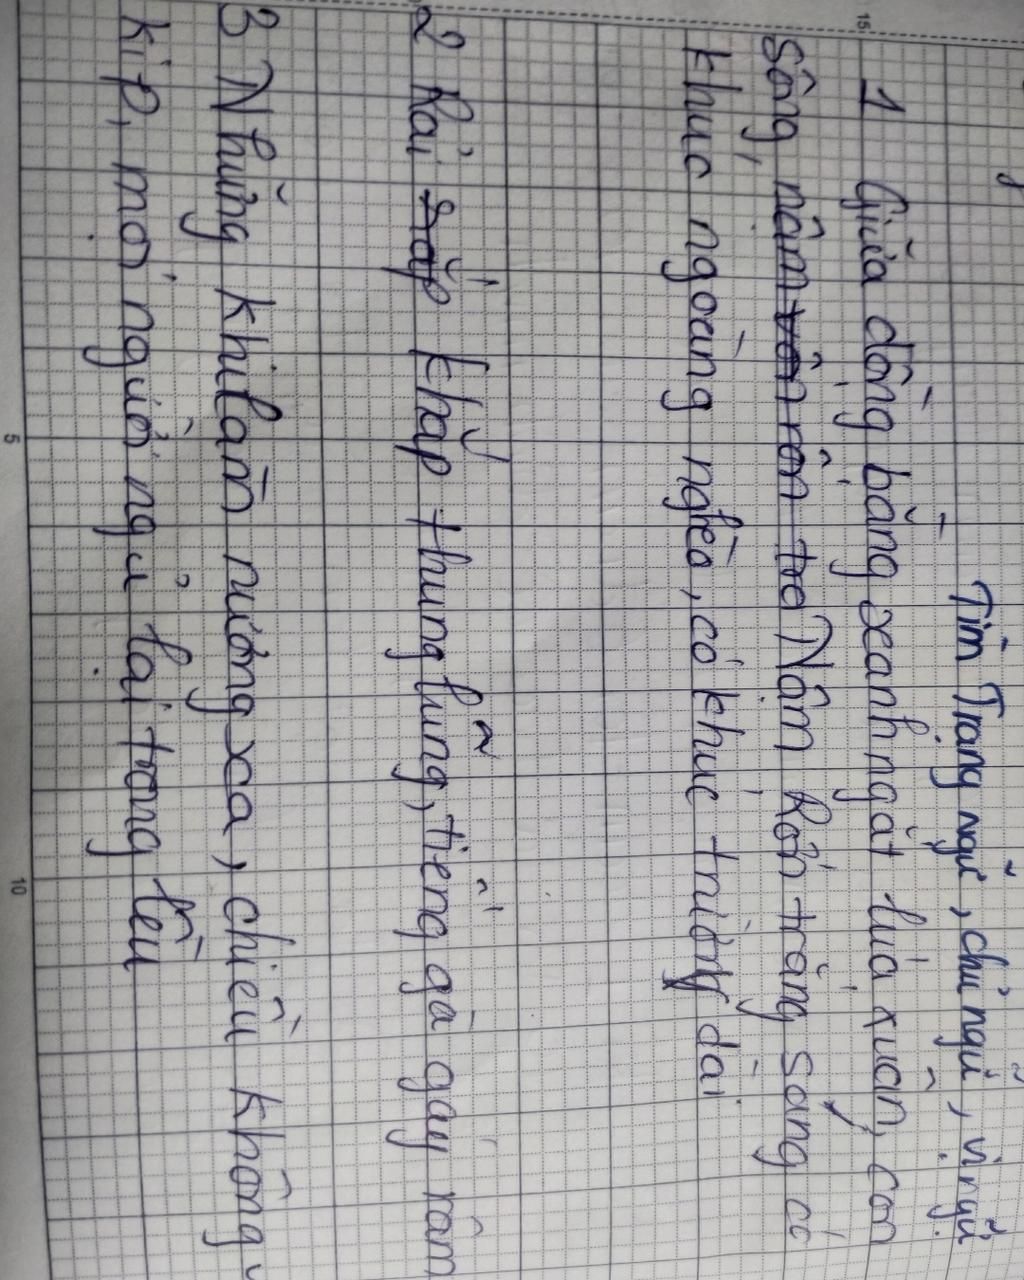 Tìm Trạng ngữ, chủ ngữ, vị ngữ
1 Giữa đồng bằng xanh ngắt lúa xuân, con
sông, Nậm Rốn trắng sáng có
khúc ngoằng nghèo, có khúc trường dài
2 Rải khắp thung lũng, tiếng gà gáy râm
3 Những khi làm nương xa, chiều không
kịp, mọi người ngủ lại trong lều